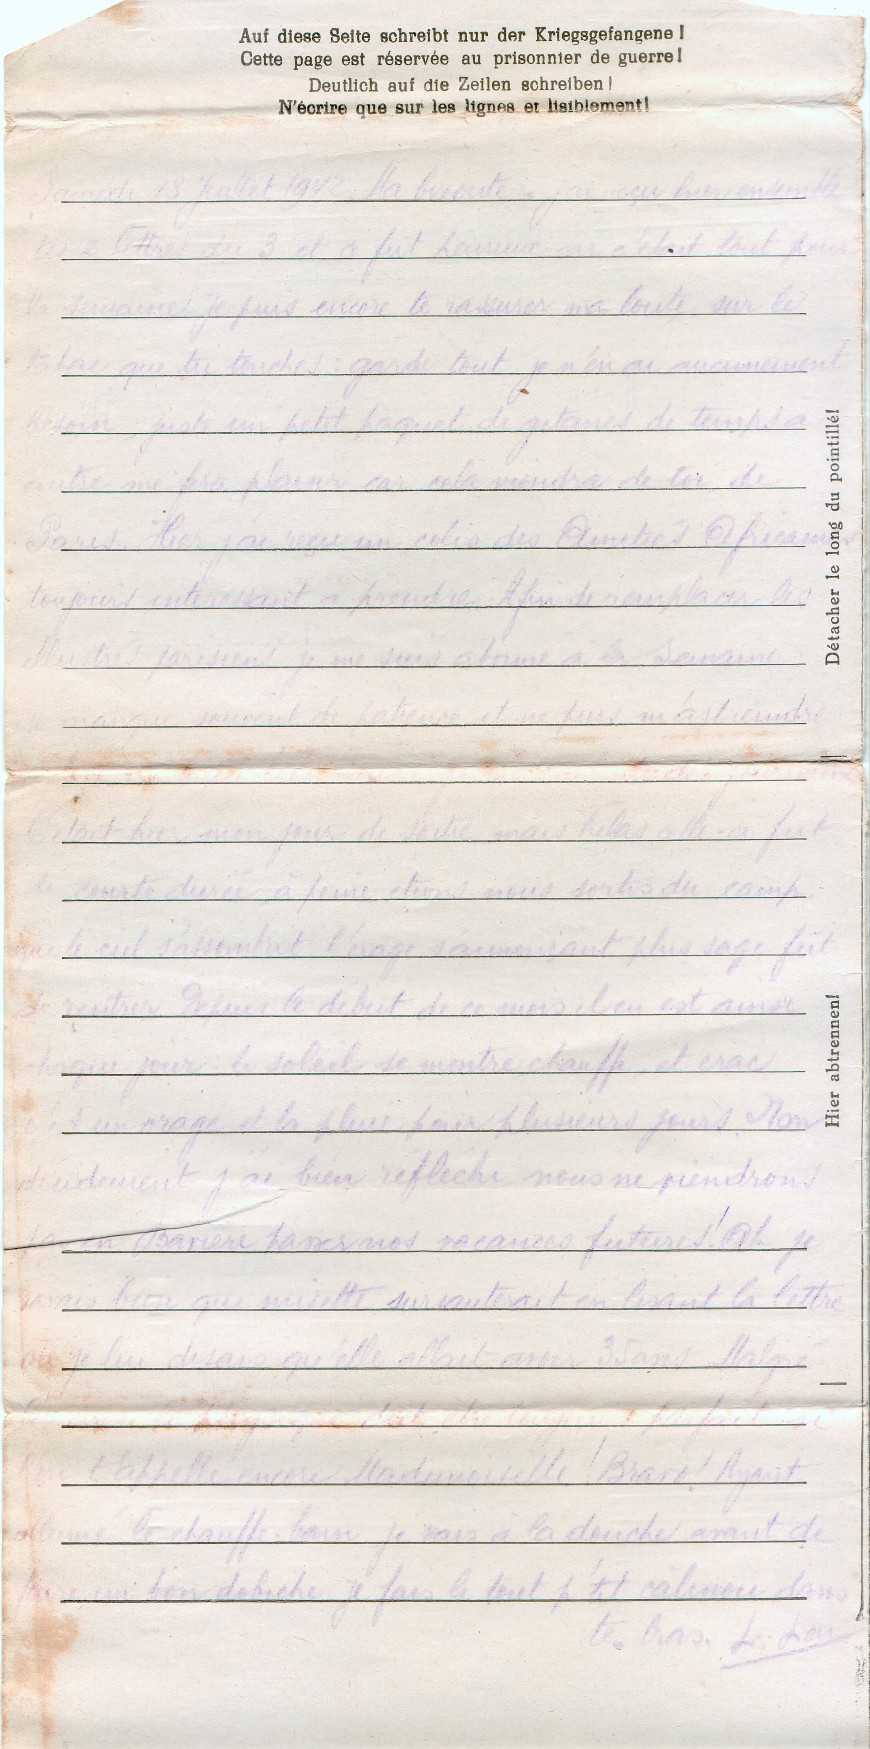 Auf diese Seite schreibt nur der Kriegsgefangene!
Cette page est réservée au prisonnier de guerre!
Deutlich auf die Zeilen schreiben!
N'écrire que sur les lignes et lisiblement!
Samedi 18 Juillet 1942. Ma j'ai reçu hier ensemble
tes 2 lettres du 3 et 6 fut heureux car c'était tout pour
la semaine. Je puis encore te rassurer ma loute sur le
tabac que tu touches : garde tout je n'en ai aucunement
besoin, juste un petit paquet de gitanes de temps à
autre me fera plaisir car cela viendra de toi de
Paris. Hier j'ai reçu un colis des Amitiés Africaines
toujours intéressant à prendre. Afin de remplacer les
illustrés parisiens je me suis abonné à la Semaine
manque souvent de patience et ne puis m'astreindre
C'était hier mon jour de sortie mais hélas celle-ci fut
de courte durée à peine étions nous sortis du camp
que le ciel s'assombrit l'orage s'annonçant plus sage fut
de rentrer. Depuis le début de ce mois il en est ainsi
chaque jour : le soleil se montre chauffe et crac
c'est un orage et la pluie pour plusieurs jours. Non
décidement j'ai bien réfléchi nous ne viendrons
pas en Bavière passer nos vacances futures! Ah je
savais bien que misette sursauterait en lisant la lettre
où je lui disais qu'elle allait avoir 35 ans. Malgré
doit être toujours parfait
l'on t'appelle encore Mademoiselle! Bravo! Ayant
allumé le chauffe-bain je vais à la douche avant de
faire un bon dobiche. Je fais le tout p'tit calinou dans
tes bras. Le Lou
Détacher le long du pointillé!
Hier abtrennen!